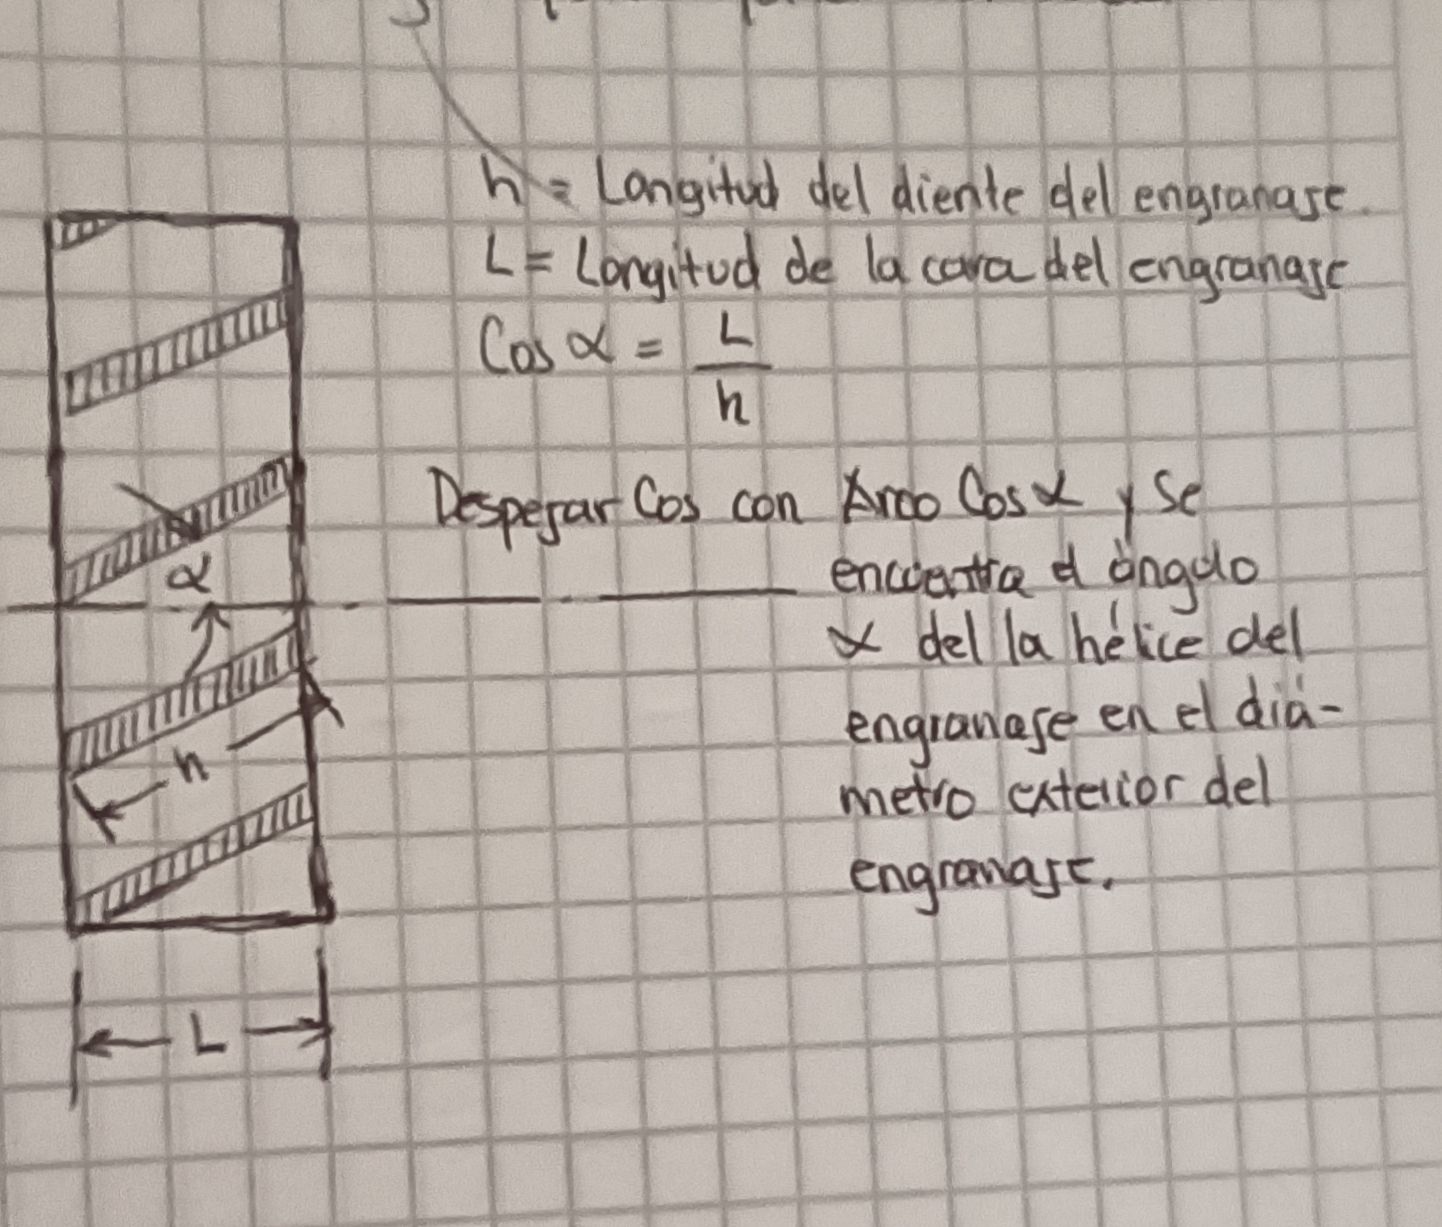 h = Longitud del diente del engranaje.
L = Longitud de la cara del engranaje
Cos α = L / h
Despejar Cos con Arco Cos α y se
encuentra el ángulo
α del la hélice del
engranaje en el diá-
metro exterior del
engranaje.
α
h
L